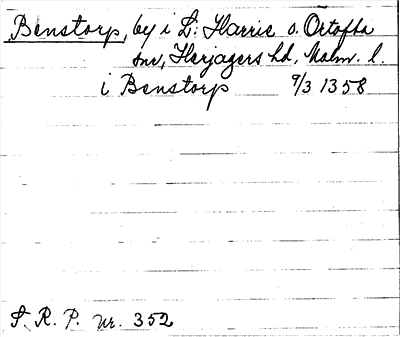 Benstorp, by i L: Harrie o. Örtofta
snr, Harjagers hd, Malm. l.
i Benstorp 9/3 1358
S. R. P. nr. 352